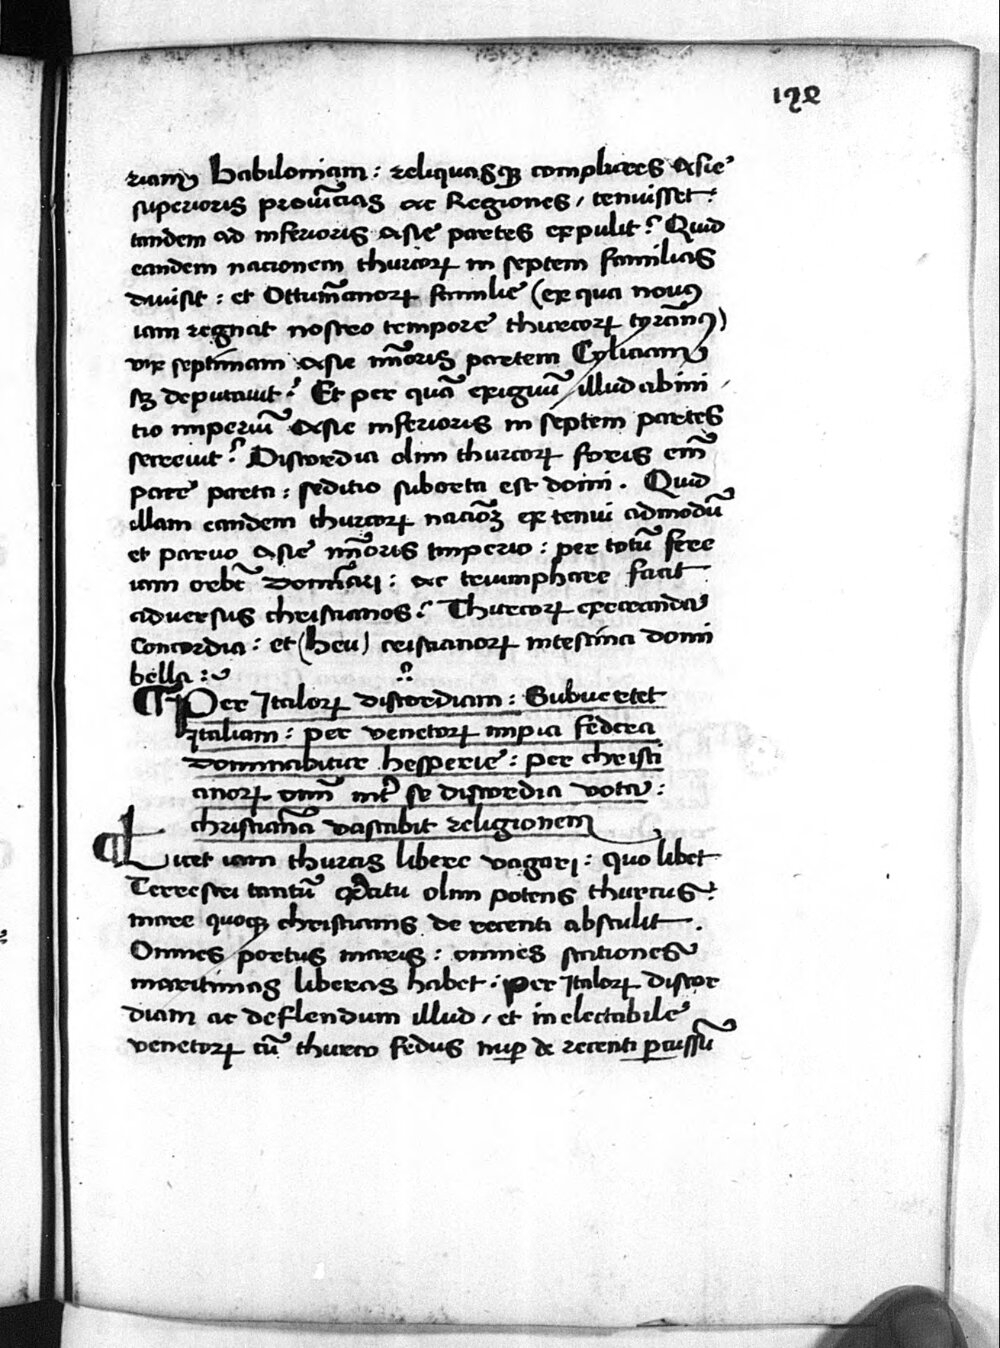 172
riam, babiloniam : reliquasq3 complures Asie
superioris prouĩcias ac Regiones, tenuisset :
tandem ad inferioris Asie partes expulit? Quid
eandem nacionem thurcorꝝ in septem familias
diuisit : et Ottumãnorꝝ familie (ex qua nouꝰ
iam regnat nostro tempore thurcorꝝ tyrãnꝰ)
vix septimam Asie mĩoris partem Cyliciam
sꝫ deputauit? Et per quã exiguũ illud ab ini
tio imperiũ Asie inferioris in septem partes
secreuit? Discordia olim thurcorꝝ foris em̃
parte parta : seditio suborta est domi. Quid
illam eandem thurcorꝝ nacioꝫ ex tenui admodũ
et paruo Asie mĩoris Imperio : per totũ fere
iam orbẽ domĩari : ac triumphare facit
aduersus christianos? Thurcorꝝ execranda
Concordia : et (heu) cristianorꝝ intestina domi
bella :
Per Italorꝝ discordiam : Subuertet
Italiam : per venetorꝝ impia federa
dominabitur hesperie : per christi
anorꝝ oĩm inť se discordia vota :
christianã vastabit religionem
Licet iam thurcas libere vagari : quo libet
Terrestri tantũ olim potens thurcus :
mare quoqꝫ christianis de recenti abstulit.
Omnes portus maris : omnes stationes
maritimas liberas habet : per Italorꝝ discor
diam ac deflendum illud, et inelectabile
venetorꝝ cũ thurco fedus nuꝑ de recenti ꝑcussũ